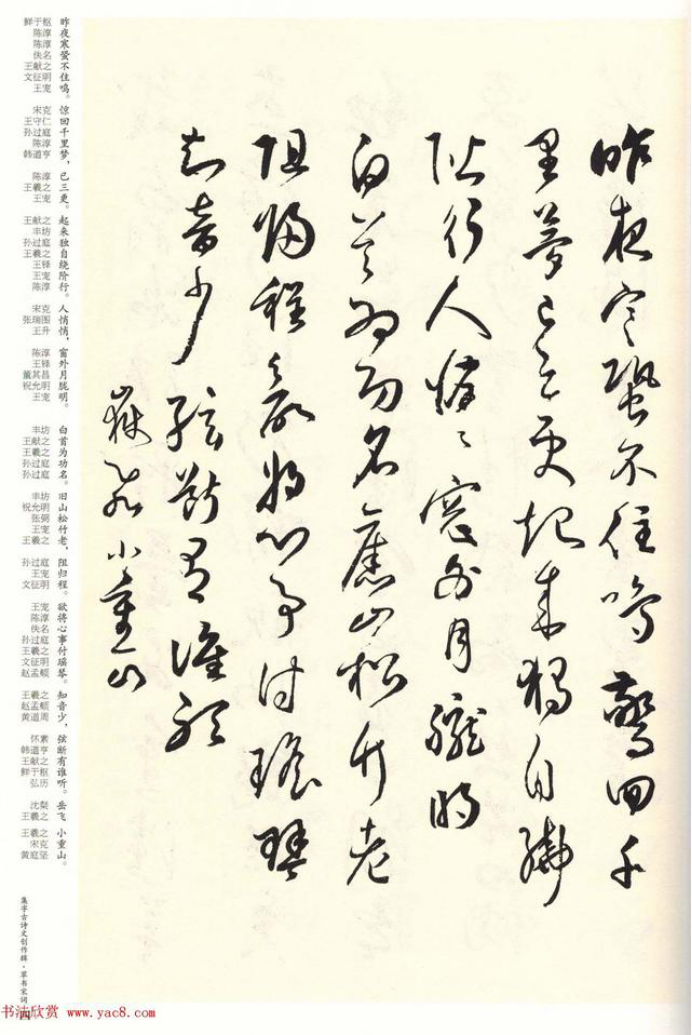 昨夜寒蛩不住鳴驚回千
里夢已三更起來獨自繞
階行人悄悄窓外月朧明
白首為功名舊山松竹老
阻歸程欲將心事付瑤琴
知音少弦斷有誰聽
嶽飛小重山
昨夜寒蛩不住鸣。
惊回千里梦，
已三更。
起来独自绕阶行。
人悄悄，
窗外月胧明。
白首为功名。
旧山松竹老，
阻归程。
欲将心事付瑶琴。
知音少，
弦断有谁听。
岳飞
小重山。
鲜于枢
陈淳
陈淳
佚名
王献之
文征明
王宠
宋克
王守仁
孙过庭
陈淳
韩道亨
陈淳
王羲之
王宠
王献之
丰坊
孙过庭
王羲之
王铎
王宠
陈淳
宋克
张瑞图
王升
陈淳
王铎
董其昌
祝允明
王宠
丰坊
王献之
王羲之
孙过庭
孙过庭
丰坊
祝允明
张弼
王宠
王羲之
孙过庭
王宠
文征明
王宠
陈淳
佚名
孙过庭
王羲之
文征明
赵孟頫
王羲之
赵孟頫
黄道周
怀素
韩道亨
王献之
鲜于枢
弘历
沈粲
王羲之
王羲之
宋克
黄庭坚
集字古诗文创作辑·草书宋词
四
书法欣赏 www.yac8.com